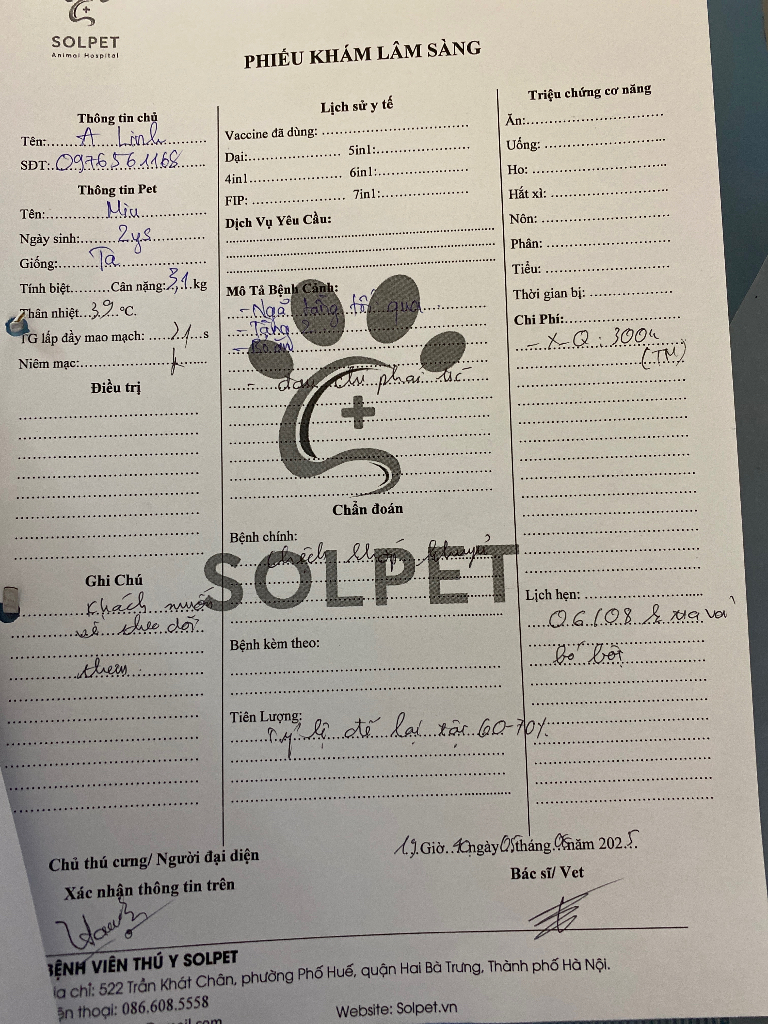 SOLPET
Animal Hospital
PHIẾU KHÁM LÂM SÀNG
Thông tin chủ
Tên: A Linh
SĐT: 0976561168
Thông tin Pet
Tên: Miu
Ngày sinh: 2ys
Giống: Ta
Tính biệt Cân nặng: 3,1 kg
Thân nhiệt 39 °C.
TG lấp đầy mao mạch: 21 s
Niêm mạc:
Điều trị
Ghi Chú
Khách muốn
về theo dõi
thêm
Lịch sử y tế
Vaccine đã dùng:
Dại: 5in1:
4in1 6in1:
FIP: 7in1:
Dịch Vụ Yêu Cầu:
Mô Tả Bệnh Cảnh:
- Ngã tầng
- Tầng 2
- Bỏ ăn
- đau chi phải
SOLPET
Chẩn đoán
Bệnh chính:
Bệnh kèm theo:
Tiên Lượng:
Tỷ lệ để lại tật 60-70%
Triệu chứng cơ năng
Ăn:
Uống:
Ho:
Hắt xì:
Nôn:
Phân:
Tiểu:
Thời gian bị:
Chi Phí:
- XQ: 300k
(TM)
Lịch hẹn:
06/08
bó bột
Chủ thú cưng/ Người đại diện
Xác nhận thông tin trên
19 Giờ ngày 05 tháng năm 2025.
Bác sĩ/ Vet
BỆNH VIỆN THÚ Y SOLPET
ịa chỉ: 522 Trần Khát Chân, phường Phố Huế, quận Hai Bà Trưng, Thành phố Hà Nội.
ện thoại: 086.608.5558
Website: Solpet.vn